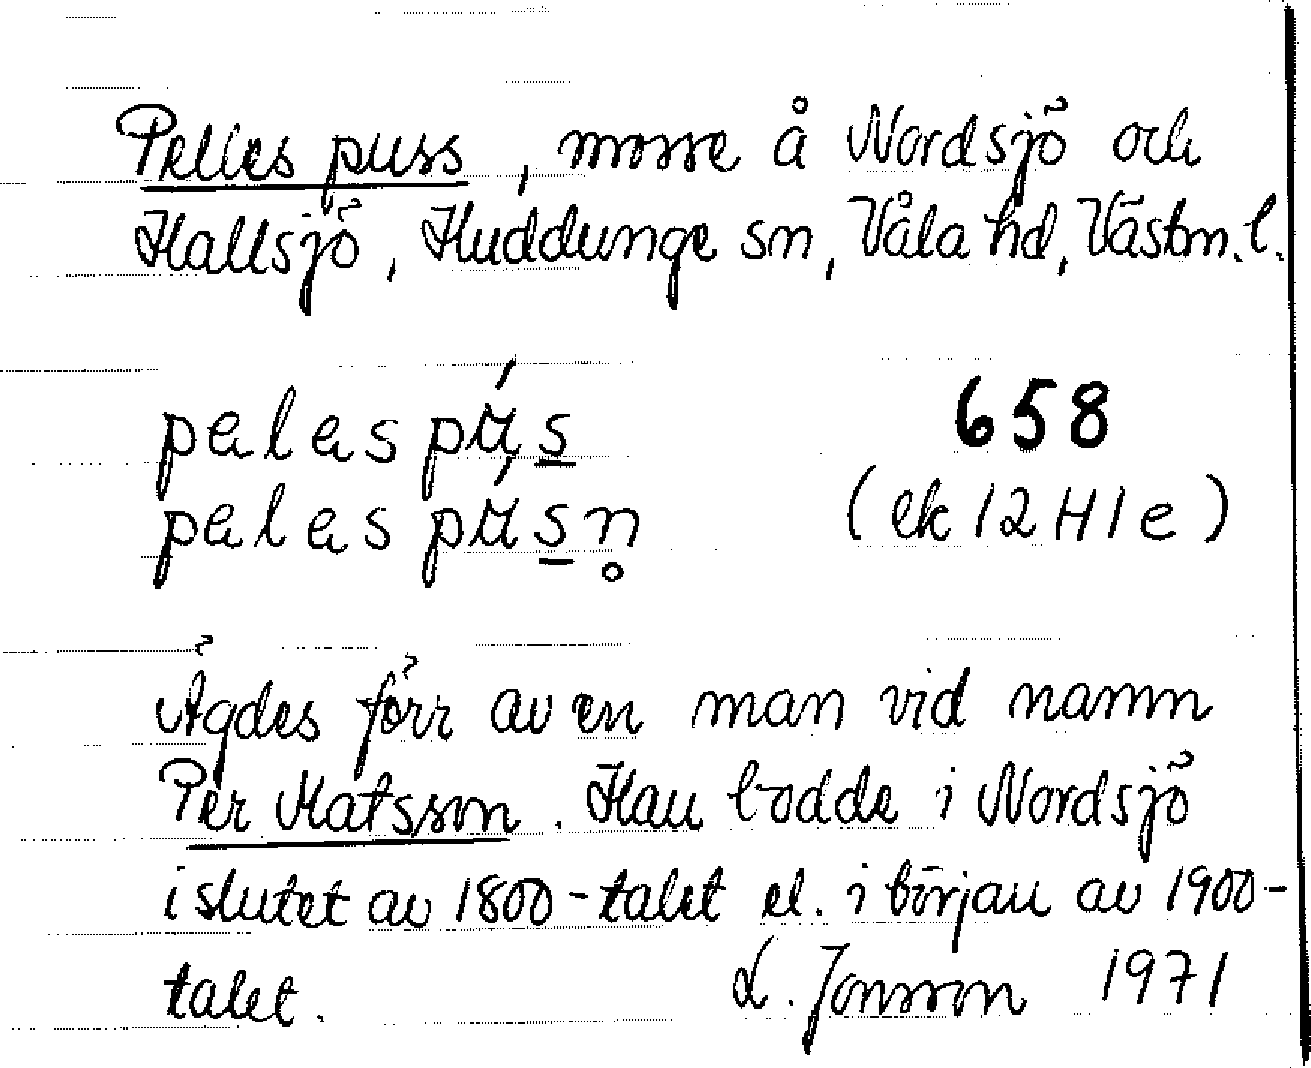 Pelles puss, mosse å Nordsjö och
Hallsjö, Huddunge sn, Våla hd, Västm. l.
pelas pús
658
pelas púsn̥
(ek 12 H 1 e)
Ägdes förr av en man vid namn
Per Matsson. Han bodde i Nordsjö
i slutet av 1800-talet el. i början av 1900-
talet.
L. Jonsson 1971